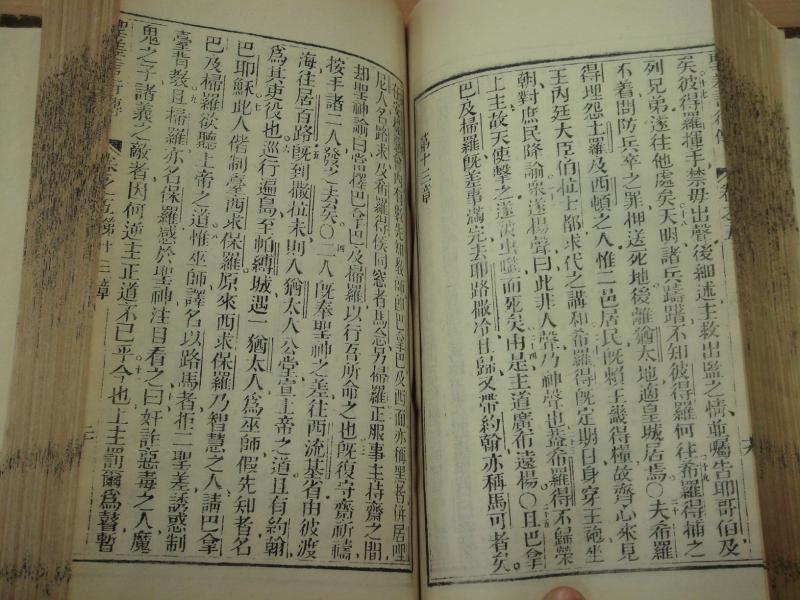 矣彼得羅揮手禁毋出聲後細述主救出監之情並囑告耶哥伯及
列兄弟遂往他處矣天明諸兵躊躇不知彼得羅何往希羅得捕之
不着問防兵卒之罪押送死地後離猶太地適皇城居焉〇夫希羅
得埋怨土羅及西頓之人惟二邑居民既賴王畿得糧故齊心來見
王內廷大臣伯拉士都求代之講和希羅得既定期日身穿王袍坐
朝對庶民降諭衆遂揚聲曰此非人聲乃神聲也蓋希羅得不歸榮
上主故天使擊之遂被虫囓而死矣由是主道廣布遠揚〇且巴拿
巴及掃羅既差事滿完去耶路撒冷且歸又帶約翰亦稱馬可者矣
第十三章
尼人名路求及希羅得侯同窓者馬念另掃羅正服事主持齋之間
却聖神諭曰當擇巴拿巴及掃羅以行吾所命之也既復守齋祈禱
按手諸二人發之去矣〇二人既奉聖神之差往西流基省由彼渡
海往居百路既到撒拉末則入猶太人公堂宣上帝之道且有約翰
爲其吏役也巡行遍島至帕縛城遇一猶太人爲巫師假先知者名
巴耶穌此人偕制臺西求保羅原來西求保羅乃智慧之人請巴拿
巴及掃羅欲聽上帝之道惟巫師譯名以路馬者拒二聖差誘惑制
臺背教且掃羅亦名保羅感於聖神注目看之曰奸詐惡毒之人魔
鬼之子諸義之敵者因何逆主正道不已乎今也上主罰爾爲瞽暫